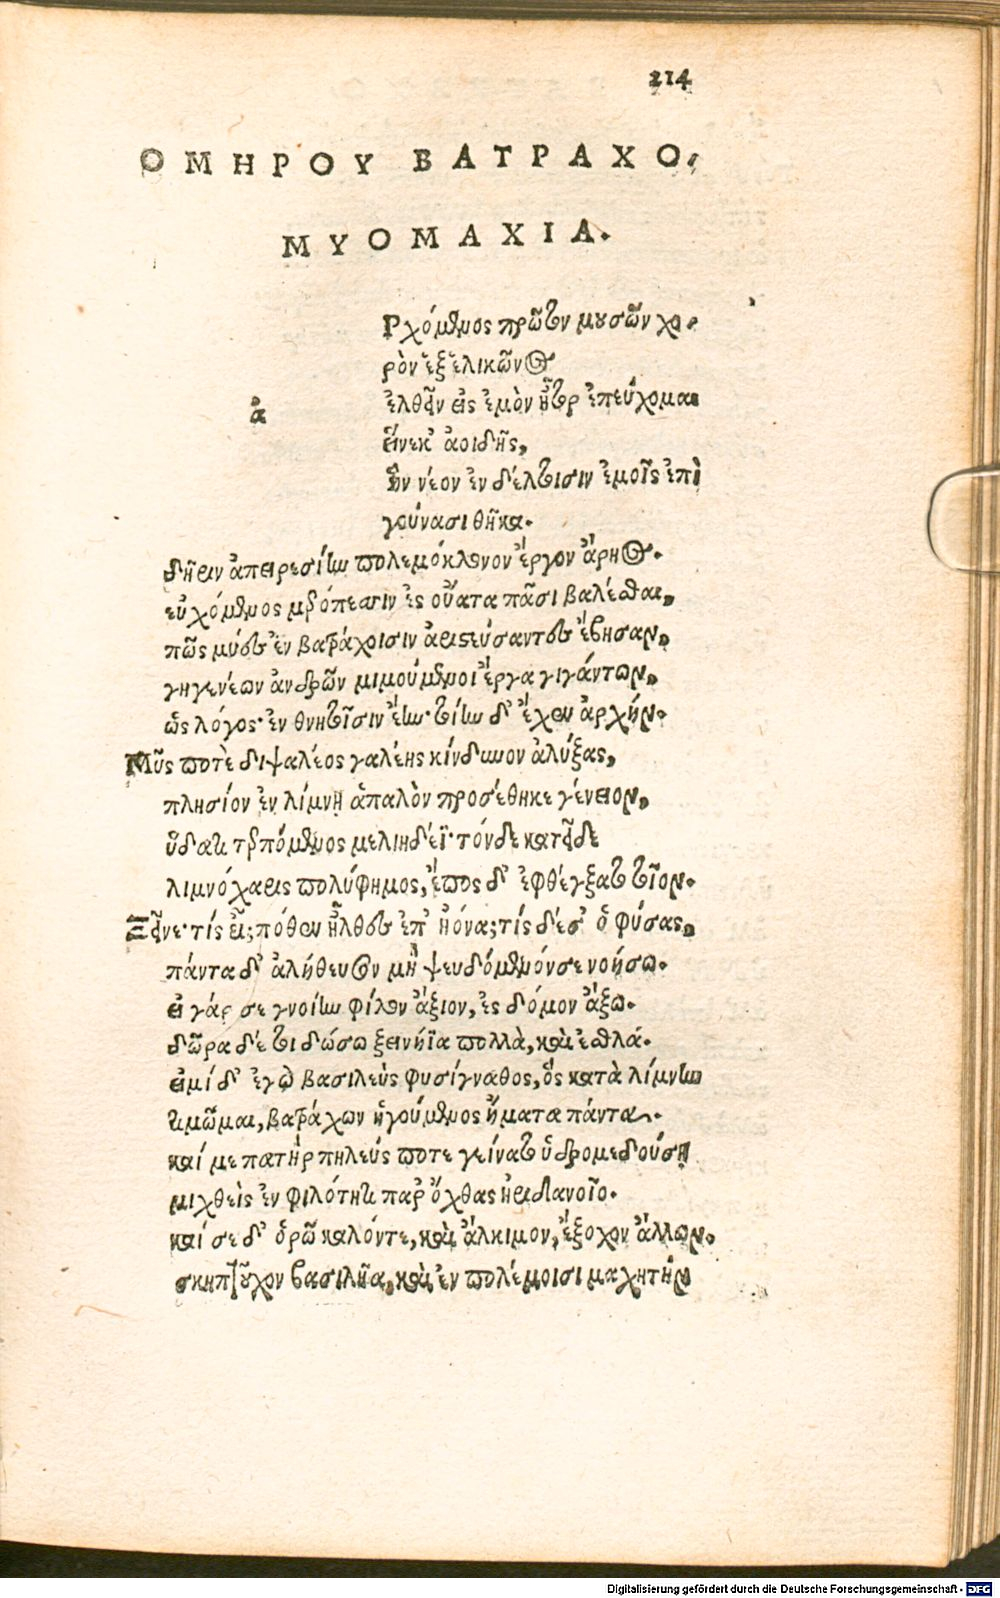 214
ΟΜΗΡΟΥ ΒΑΤΡΑΧΟ,
ΜΥΟΜΑΧΙΑ.
ἀ
Ρχόμενος πρῶτον μουσῶν χο,
ρὸν ἐξ ἑλικῶνος
ἐλθεῖν εἰς ἐμὸν ἦτορ ἐπεύχομαι
εἵνεκ' ἀοιδῆς,
ἣν νέον ἐν δέλτοισιν ἐμοῖς ἐπὶ
γούνασι θῆκα.
δῆριν ἀπειρεσίην πολεμόκλονον ἔργον ἄρηος.
εὐχόμενος μερόπεσσιν ἐς οὔατα πᾶσι βαλέσθαι,
πῶς μύες ἐν βατράχοισιν ἀριστεύσαντες ἔβησαν,
γηγενέων ἀνδρῶν μιμούμενοι ἔργα γιγάντων,
ὡς λόγος· ἐν θνητοῖσιν ἔην· τοίην δ' ἔχεν ἀρχήν.
Μῦς ποτὲ διψαλέος γαλέης κίνδυνον ἀλύξας,
πλησίον ἐν λίμνη ἁπαλὸν προσέθηκε γένειον,
ὕδατι τερπόμενος μελιηδέϊ· τόνδε κατεῖδε
λιμνόχαρις πολύφημος, ἔπος δ' ἐφθέγξατο τοῖον.
Ξεῖνε· τίς εἶ; πόθεν ἦλθες ἐπ' ἠόνα; τίς δέ σ' ὁ φύσας,
πάντα δ' ἀλήθευσον μὴ ψευδόμενόν σε νοήσω.
εἰ γάρ σε γνοίην φίλον ἄξιον, ἐς δόμον ἄξω.
δῶρα δέ τοι δώσω ξεινήϊα πολλὰ, καὶ ἐσθλά.
εἰμί δ' ἐγὼ βασιλεὺς φυσίγναθος, ὃς κατὰ λίμνην
τιμῶμαι, βατράχων ἡγούμενος ἤματα πάντα.
καί με πατὴρ πηλεύς ποτε γείνατο ὑδρομεδούση
μιχθεὶς ἐν φιλότητι παρ' ὄχθας ἠριδανοῖο.
καί σε δ' ὁρῶ καλόντε, καὶ ἄλκιμον, ἔξοχον ἄλλων.
σκηπτοῦχον βασιλῆα, καὶ ἐν πολέμοισι μαχητὴν
Digitalisierung gefördert durch die Deutsche Forschungsgemeinschaft - DFG